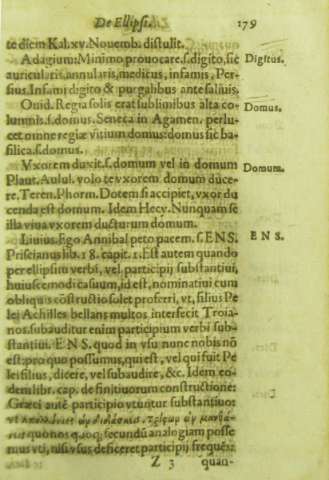 De Ellipsi. 179
te diem Kal. xv. Nouemb. distulit.
Adagium: Minimo prouocare. s. digito, sic Digitus.
auricularis, annularis, medicus, infamis, Per-
sius. Infami digito & purgabus ante saliuis.
Ouid. Regia solis erat sublimibus alta co- Domus.
lumnis. s. domus. Seneca in Agamen. perlu-
cet omne regiæ vitium domus: domus sic ba-
silica. s. domus.
Vxorem duxit. s. domum vel in domum Domum.
Plaut. Aulul. volo te vxorem domum duce-
re. Teren. Phorm. Dotem si accipiet, vxor du
cenda est domum. Idem Hecy. Nunquam se
illa viua vxorem ducturum domum.
Liuius. Ego Annibal peto pacem. s. ENS. ENS.
Priscianus lib. 18. capit. 1. Est autem quando
per ellipsim verbi, vel participij substantiui,
huiuscemodi casuum, id est, nominatiui cum
obliquis cōstructio solet proferri, vt, filius Pe
lei Achilles bellans multos interfecit Troia-
nos. subauditur enim participium verbi sub-
stantiui. ENS. quod in vsu nunc nobis nō
est: pro quo possumus, qui est, vel qui fuit Pe
lei filius, dicere, vel subaudire, &c. Idem eo-
dem libr. cap. de finitiuorum constructione:
Græci autē participio vtuntur substantiuo:
vt
quo nos quoq; secundū analogiam posse-
mus vti, nisi vsus deficeret participij frequēs:
Z 3 quan-